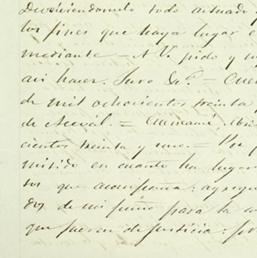 Devolviendomelo todo actuado p
los fines que haya lugar e
mediante = A V. pido y
asi hacer. Juro &a. = Cu
de mil ochocientos treinta
de = Cumaná.
cientos treinta y uno. = Por p
mitido en cuanto ha lugar
tos que acompaña: agregu
dos de mi puño para la
que fueren de justicia: